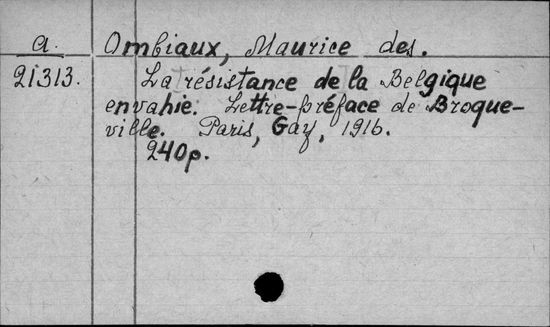 a. Ombiaux, Maurice des.
21313. La résistance de la Belgique
envahie. Lettre-préface de Broque-
ville. Paris, Gay, 1916.
240p.